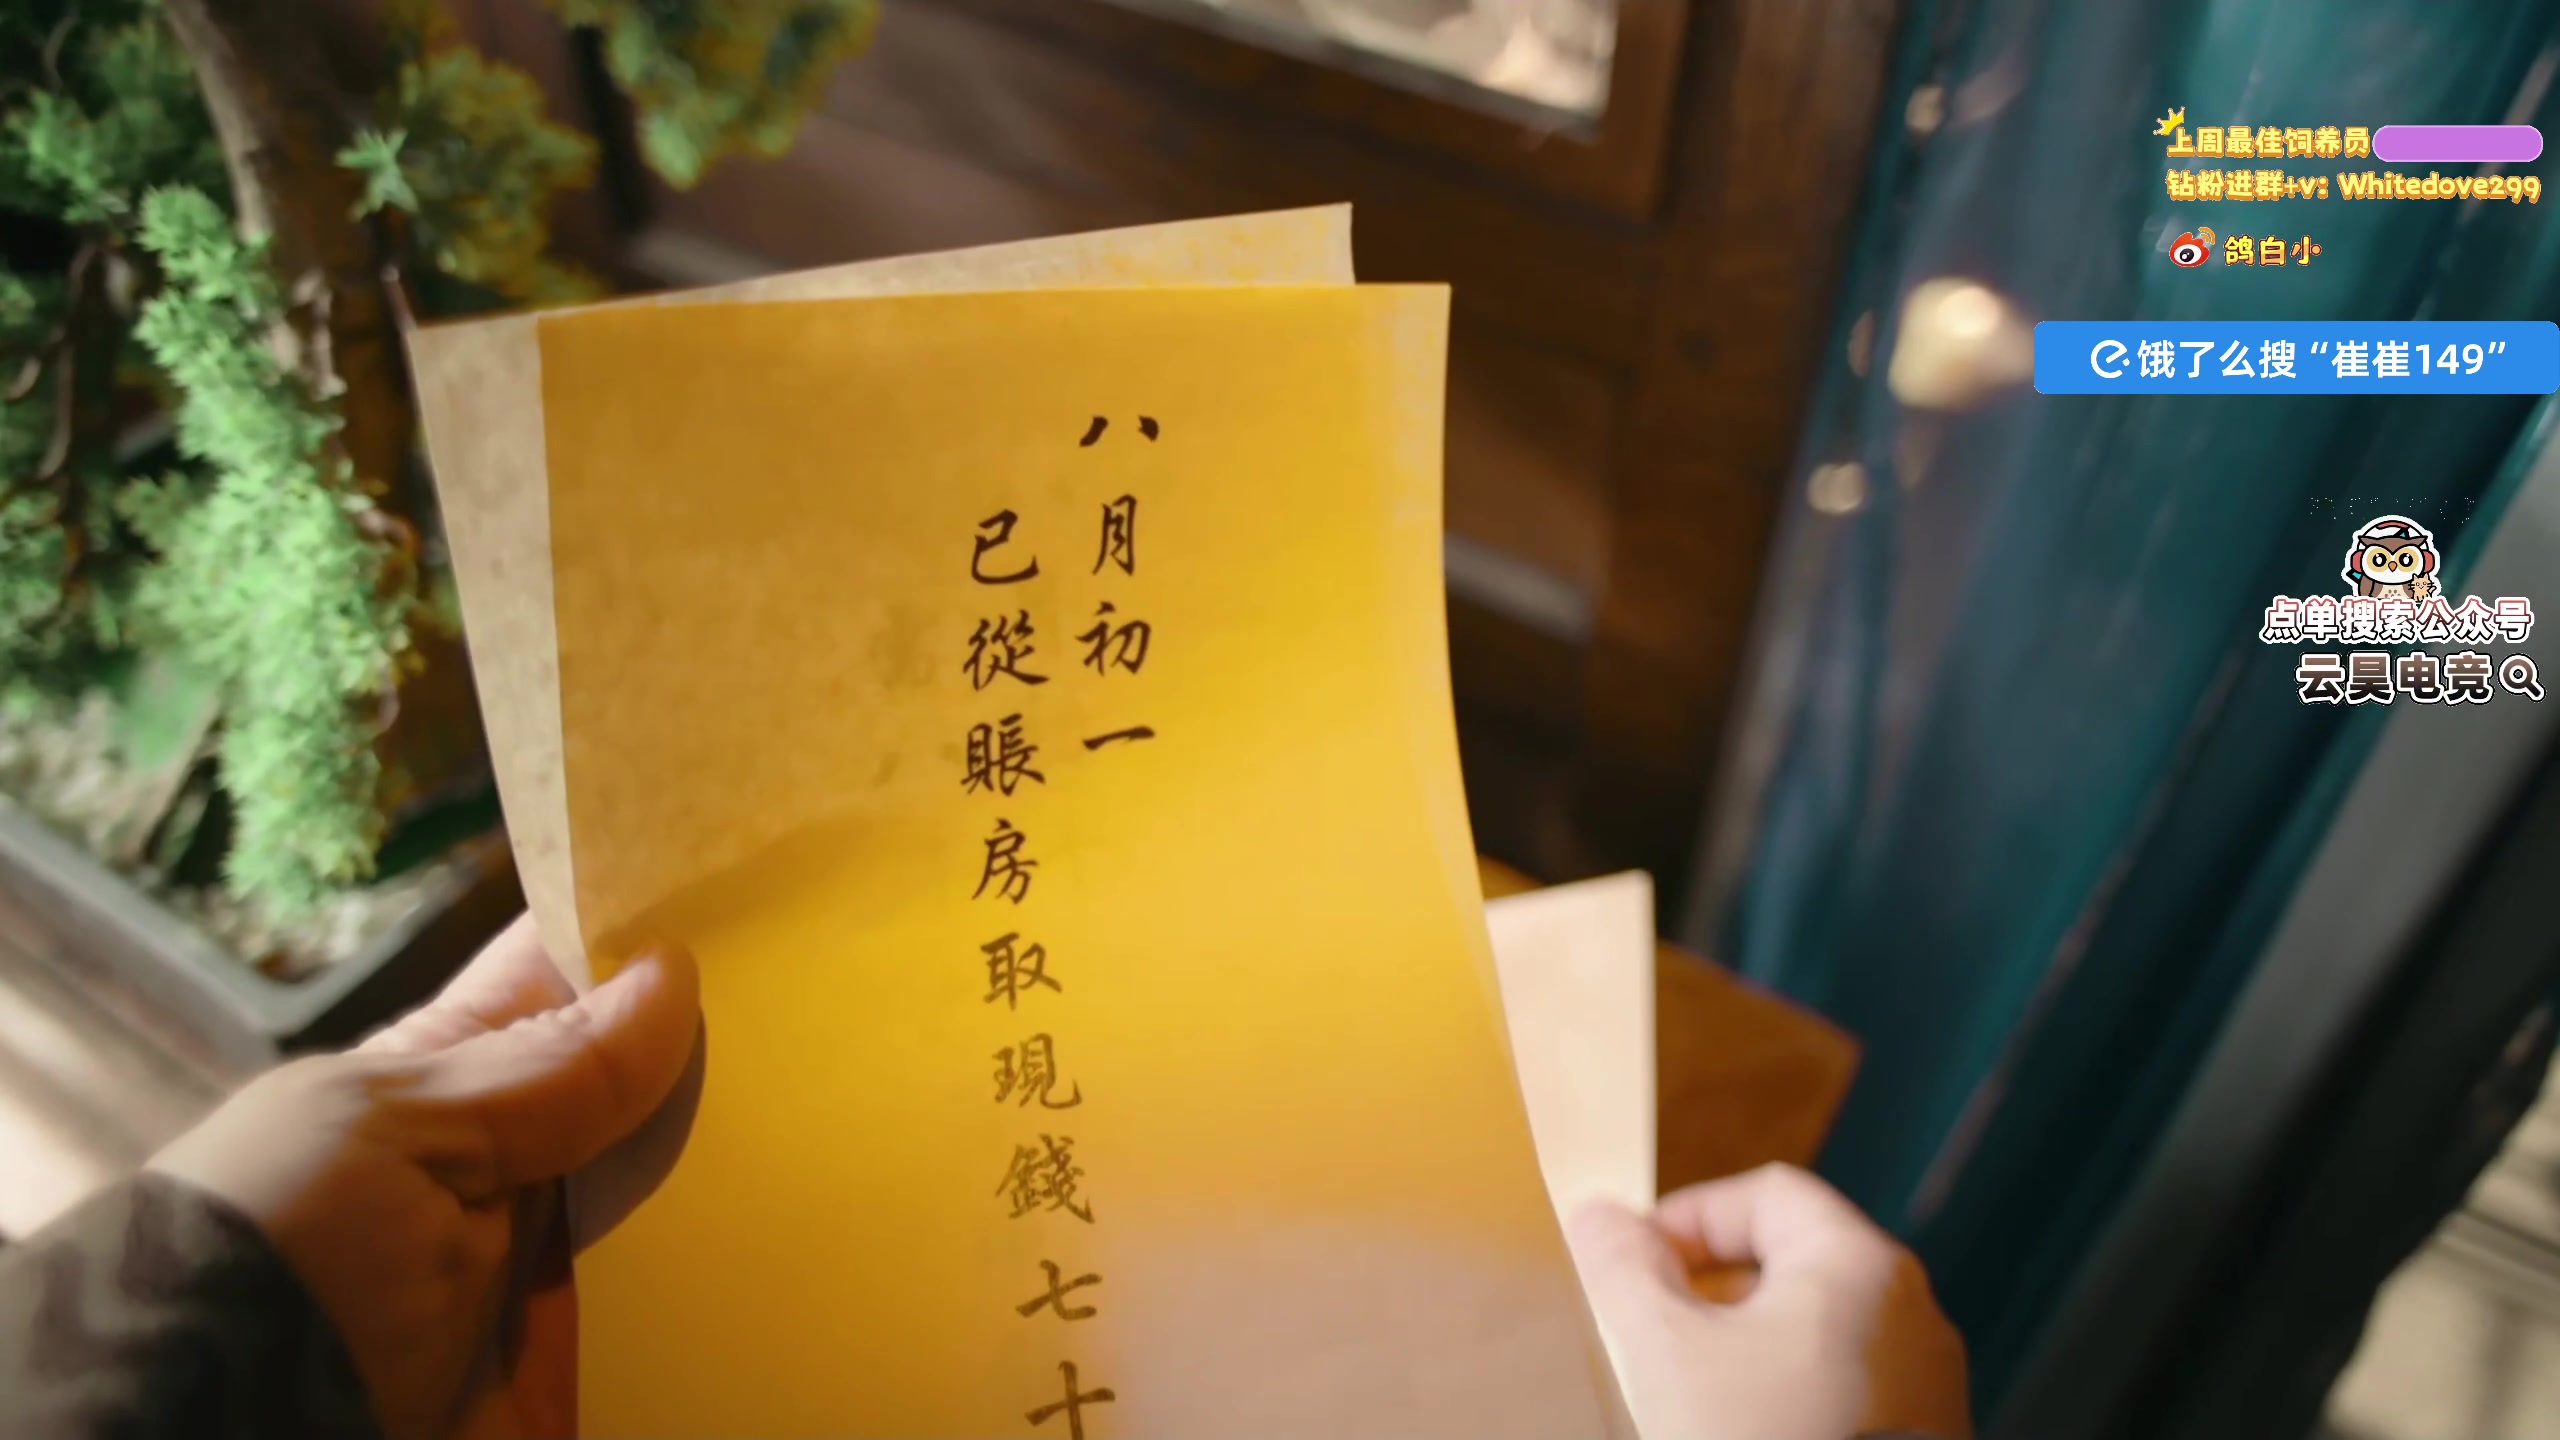 八月初一
已從賬房取現錢七十
上周最佳饲养员
钻粉进群+v: Whitedove299
鸽白小
饿了么搜“崔崔149”
点单搜索公众号
云昊电竞